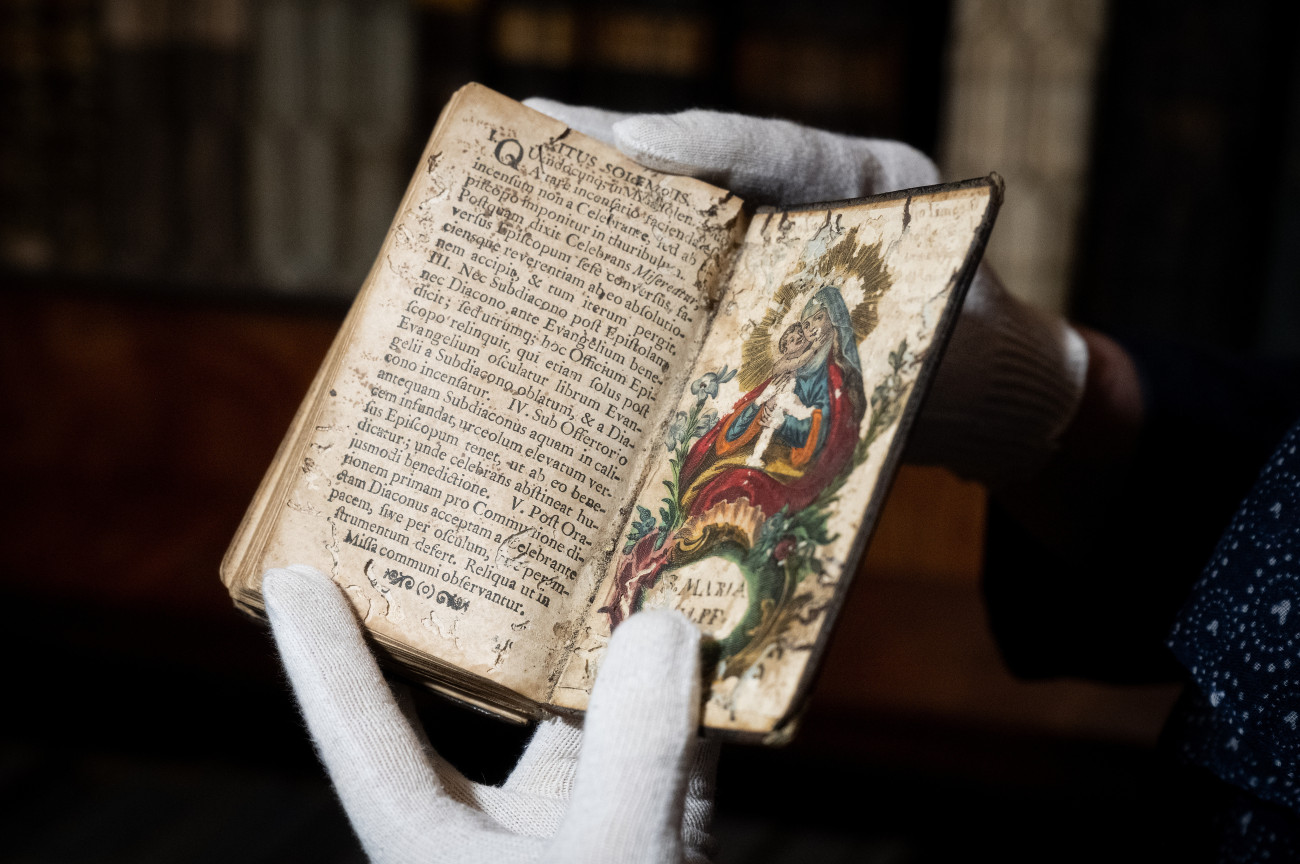 RITUS SOLEMNIS
Quandocunque in Missa solem-
incensum non a Celebrante, sed ab
piscopo imponitur in thuribulum.
Postquam dixit Celebrans Misereatur
versus Episcopum sese conversus, fa-
ciensque reverentiam ab eo absolutio-
nem accipit, & tum iterum pergit.
III. Nec Subdiacono post Epistolam
nec Diacono ante Evangelium bene-
dicit; sed utrumq; hoc Officium Epi-
scopo relinquit, qui etiam solus post
Evangelium osculatur librum Evan-
gelii a Subdiacono oblatum, & a Dia-
cono incensatur. IV. Sub Offertorio
antequam Subdiaconus aquam in cali-
cem infundat, urceolum elevatum ver-
sus Episcopum tenet, ut ab eo bene-
dicatur; unde celebrans abstineat hu-
jusmodi benedictione. V. Post Ora-
tionem primam pro Communione di-
ctam Diaconus acceptam a Celebrante
pacem, sive per osculum,
strumentum defert. Reliqua ut in
Missa communi observantur.
(o)
S. MARIA